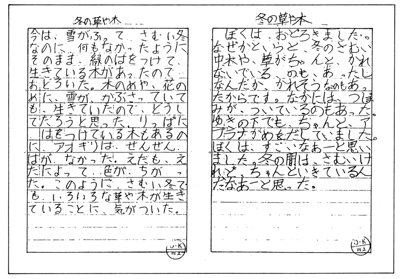 冬の草や木
今は、雪がふって、さむい冬
なのに、何もなかったように
そのまま、緑のはをつけて、
生きている木があったので、
おどろいた。木のめや、花の
めに、雪が、かぶさっていて
も、生きていたので、どうし
てだろうと思った。りっぱに
はをつけている木もあるの
に、アオギリは、ぜんぜん、
はが、なかった。えだも、え
だによって、色が、ちがっ
た。このように、さむい冬で
も、いろいろな草や木が生き
ていることに、気がついた。
冬の草や木
ぼくは、おどろきました。
なぜかというと、冬のさむい
中木や、草がちゃんと、かれ
ないでいる、のも、あったし
なんだか、かれそうなのもあっ
たからです。なかには、つぼ
みが、ついているのもあった。
ゆきの下でも、ちゃんと、
がめをだしていました。
ぼくは、すごいなあーと思い
ました。冬の間は、さむいけ
れど、ちゃんといきているん
だなあーと思った。